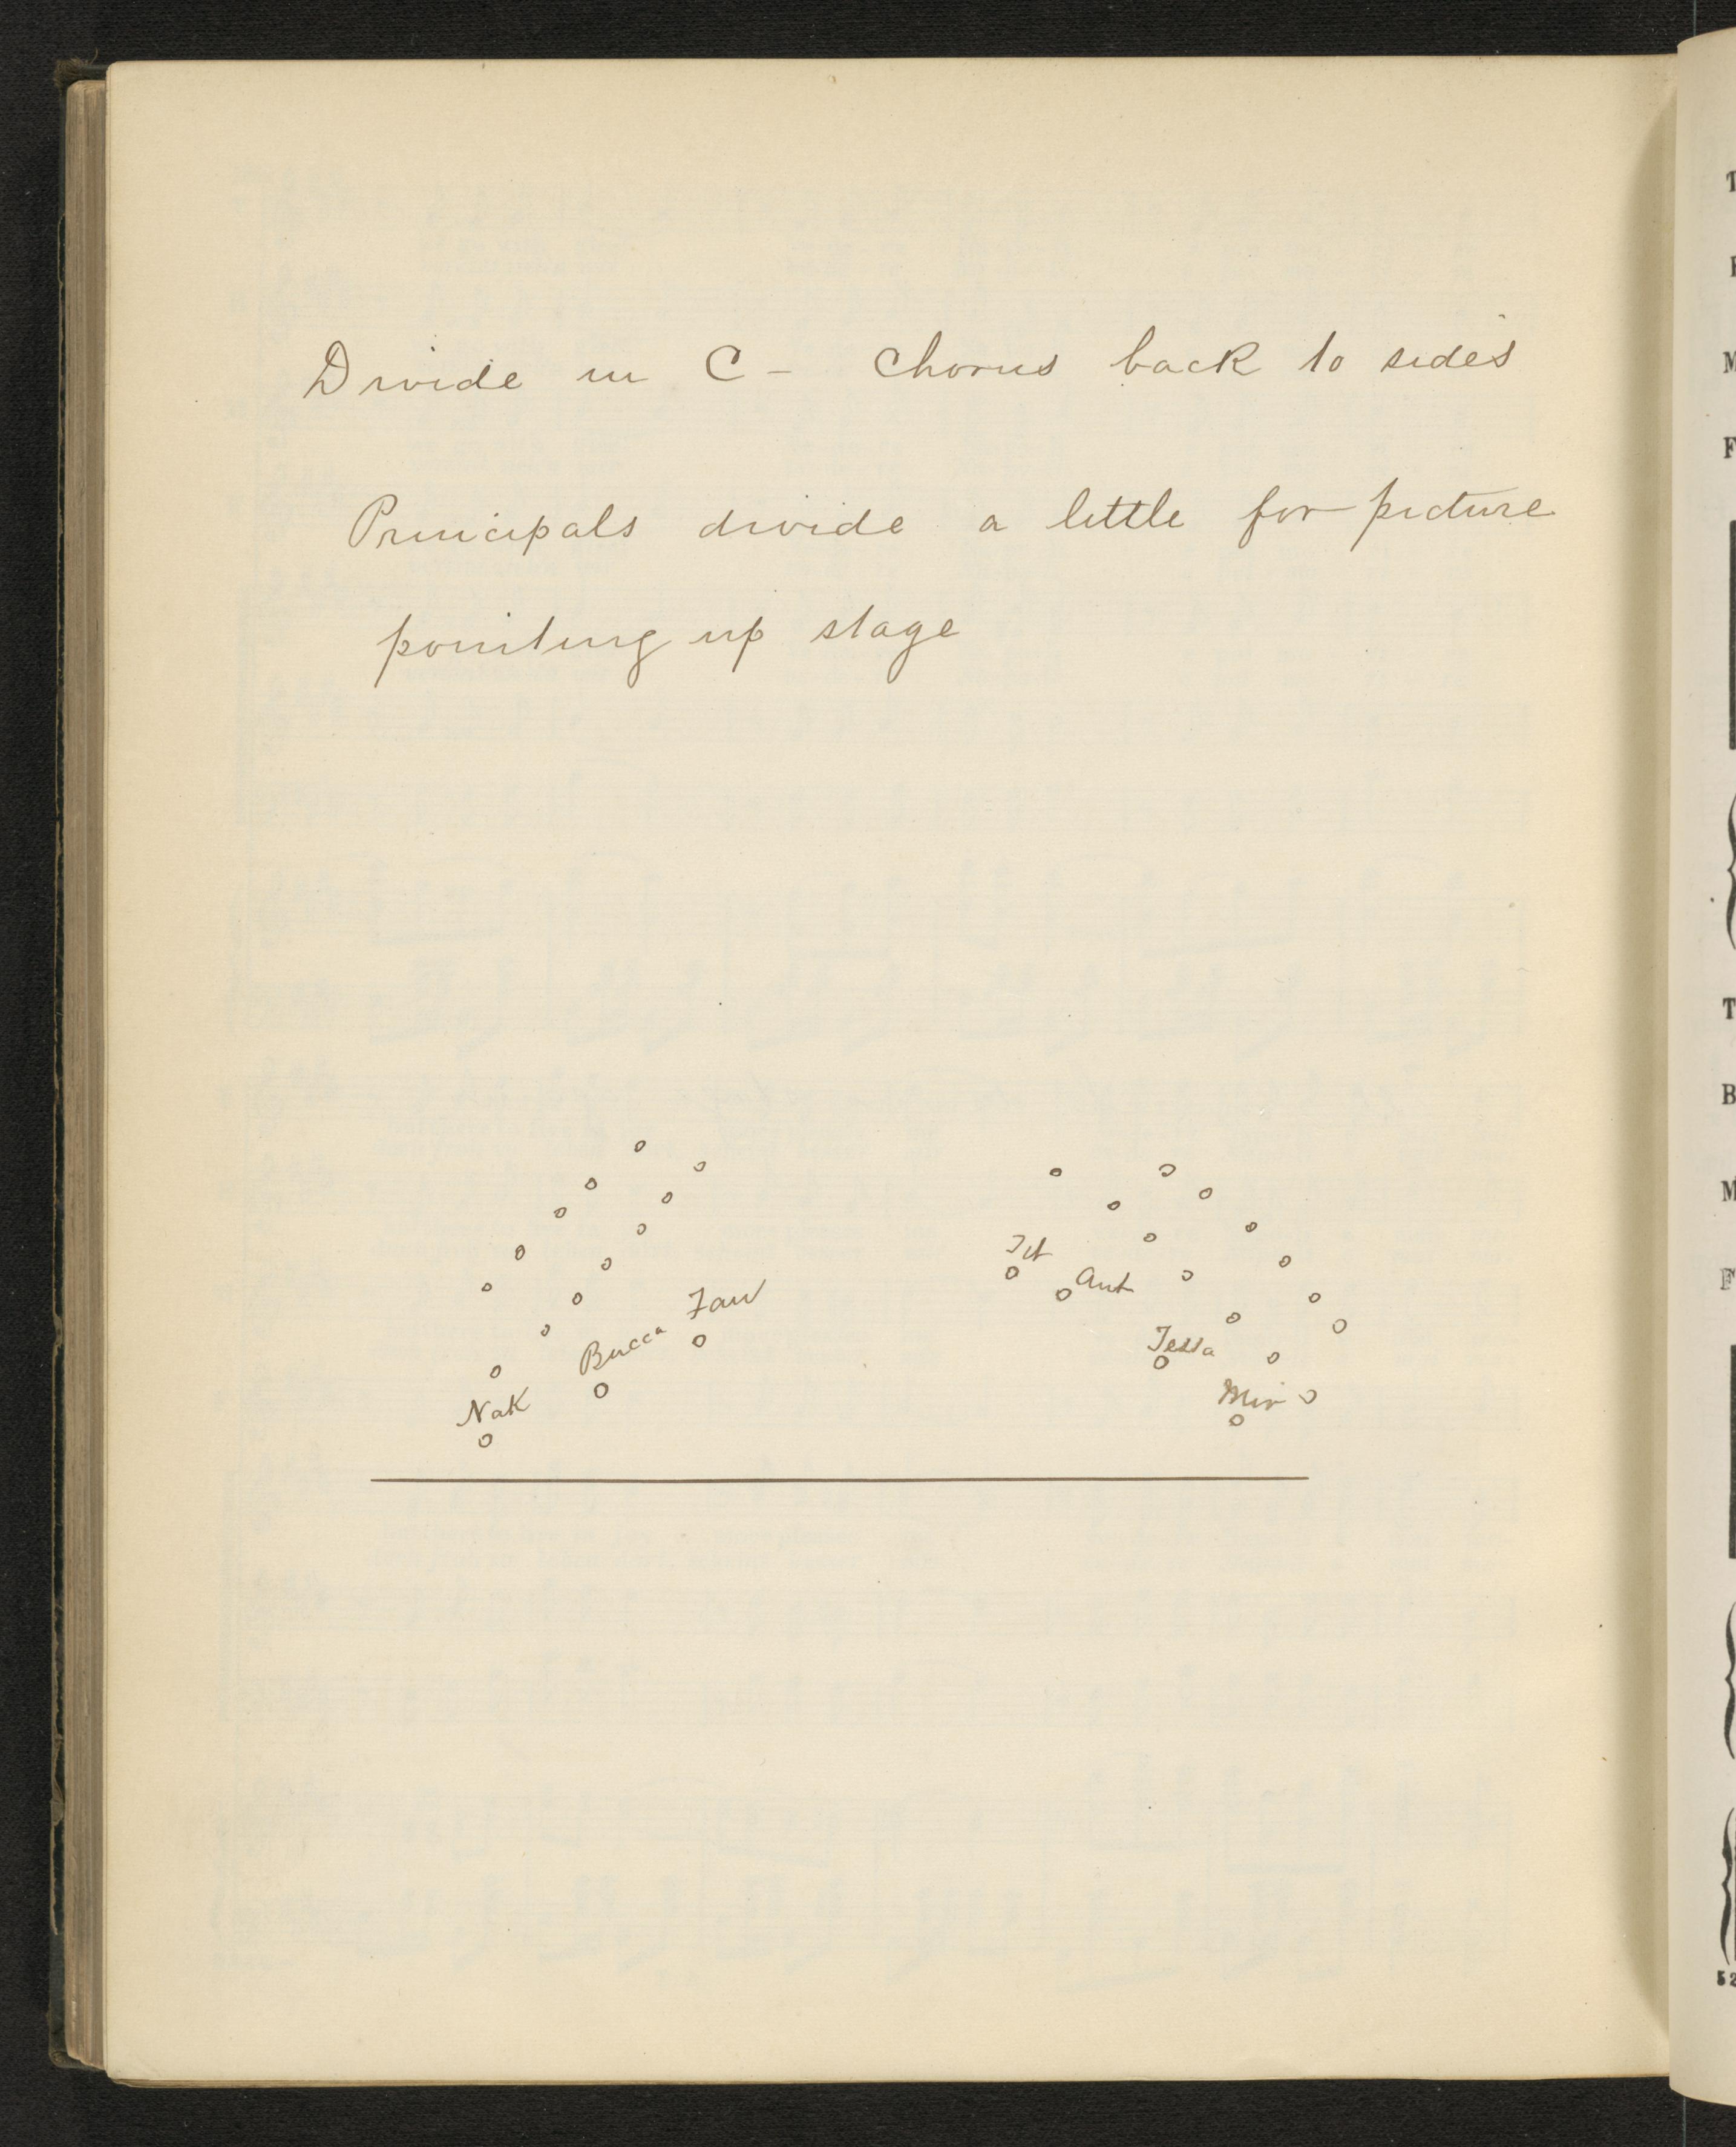 Divide in C – Chorus back to sides
Principals divide a little for picture
pointing up stage
Jet
Ant
Faw
Bucca
Tessa
Nak
Mir
T
M
F
T
B
M
F
52